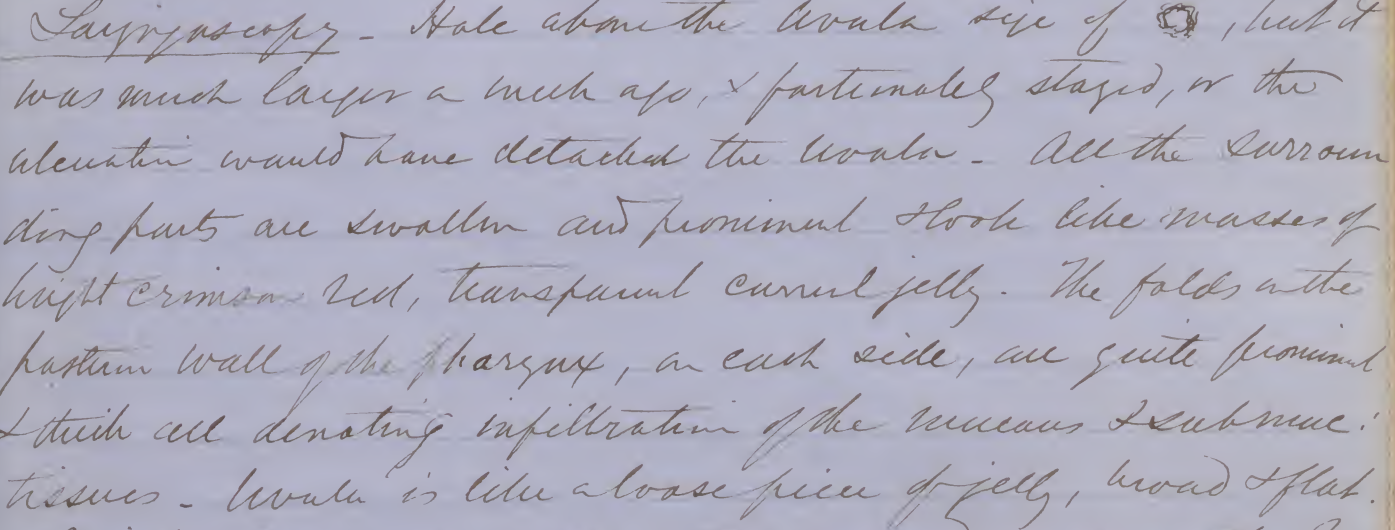 Laryngoscopy - Hole above the Uvula size of , but it
was much larger a week ago, & fortunately stayed, or the
ulceration would have detached the Uvula - All the surroun
ding parts are swollen and prominent & look like masses of
bright crimson red, transparent currant jelly. The folds on the
posterior wall of the pharynx, on each side, are quite prominent
& thick all denoting infiltration of the mucous & submuc:
tissues - Uvula is like a loose piece of jelly, broad & flat.